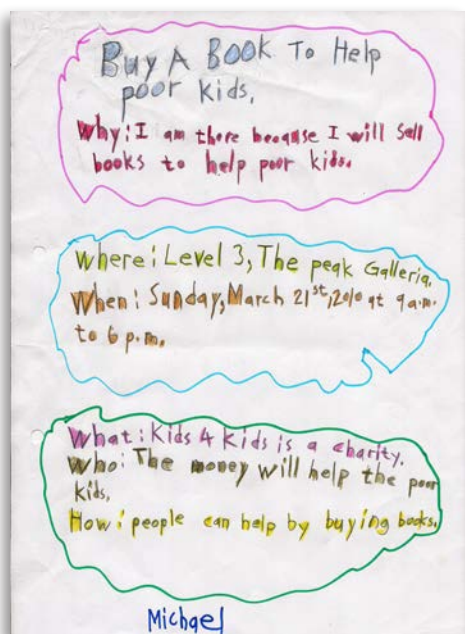 Buy A Book To Help
poor kids.
Why: I am there because I will sell
books to help poor kids.
Where: Level 3, The peak Galleria.
When: Sunday, March 21st, 2010 at 9 a.m.
to 6 p.m.
What: Kids 4 Kids is a charity.
Who: The money will help the poor
kids.
How: people can help by buying books.
Michael